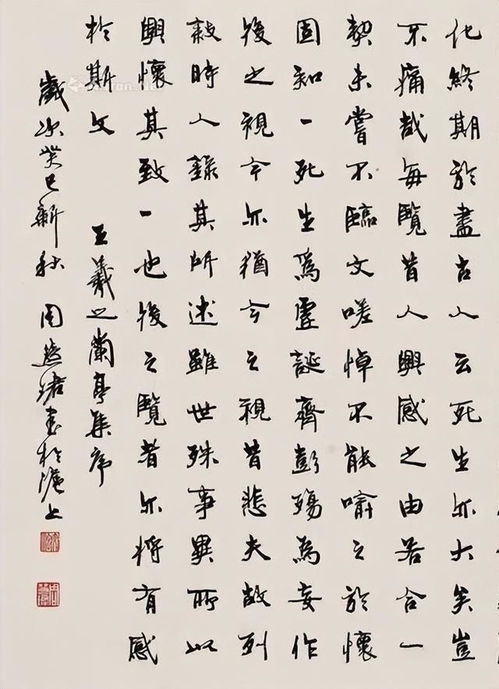 化終期於盡古人云死生亦大矣豈
不痛哉每覽昔人興感之由若合一
契未嘗不臨文嗟悼不能喻之於懷
固知一死生為虛誕齊彭殤為妄作
後之視今亦猶今之視昔悲夫故列
敘時人錄其所述雖世殊事異所以
興懷其致一也後之覽者亦將有感
於斯文 王羲之蘭亭集序
歲次癸巳新秋 周慧珺書於滬上